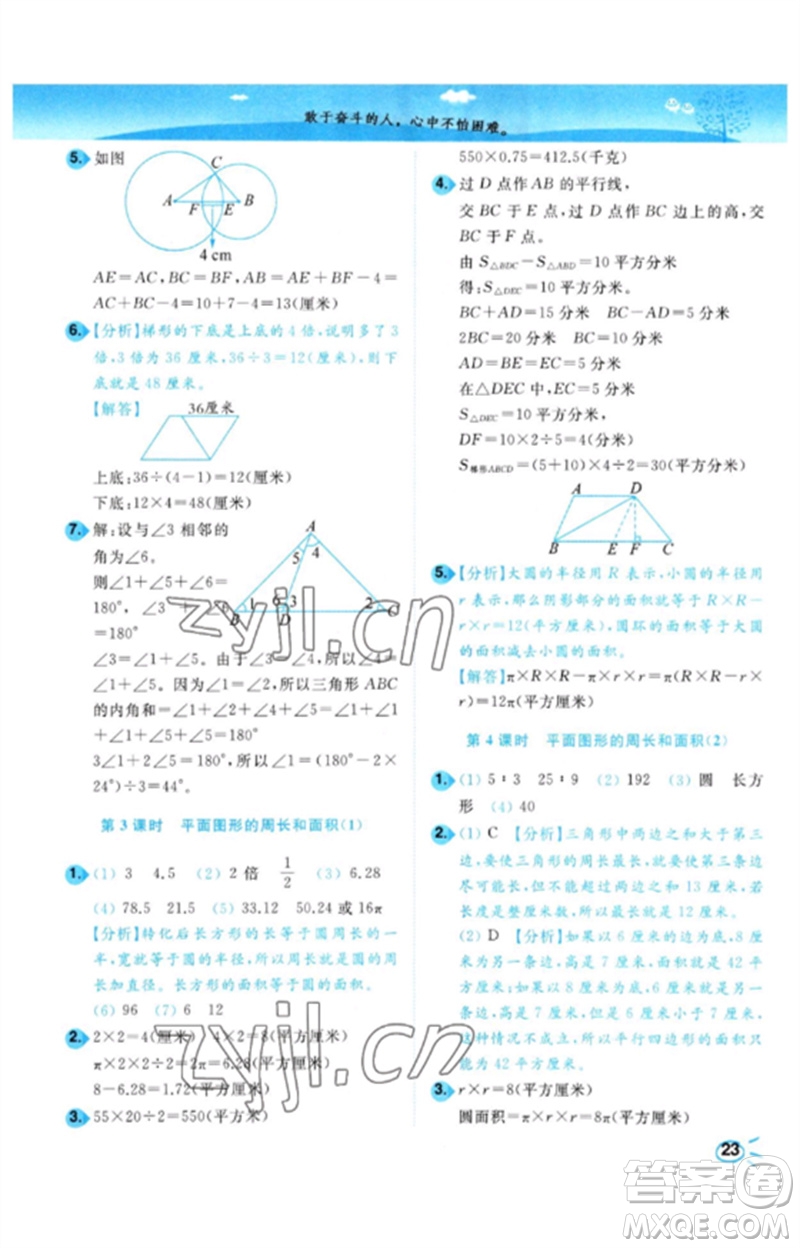 敢于奋斗的人，心中不怕困难。
5. 如图
C
A F E B
4 cm
AE=AC,BC=BF,AB=AE+BF-4=
AC+BC-4=10+7-4=13(厘米)
6. 【分析】梯形的下底是上底的4倍,说明多了3
倍,3倍为36厘米,36÷3=12(厘米),则下
底就是48厘米。
【解答】
36厘米
上底:36÷(4-1)=12(厘米)
下底:12×4=48(厘米)
7. 解:设与∠3相邻的
角为∠6。
则∠1+∠5+∠6=
180°,∠3+∠6
=180°
A
5 4
B 1 6 3 2 C
D
∠3=∠1+∠5。由于∠3=∠4,所以∠4=
∠1+∠5。因为∠1=∠2,所以三角形ABC
的内角和=∠1+∠2+∠5+∠4=
3∠1+2∠5=180°,所以∠1=(180°-2×
24°)÷3=44°。
第3课时 平面图形的周长和面积(1)
1. (1) 3 4.5 (2) 2倍 1/2 (3) 6.28
(4) 78.5 21.5 (5) 33.12 50.24或16π
【分析】转化后长方形的长等于圆周长的一
半,宽就等于圆的半径,周长等于圆的周长
加直径。长方形的面积等于圆的面积。
(6) 96 (7) 6 12
2. 2×2=4(厘米) 4×2=8(平方厘米)
π×2×2÷2=6.28(平方厘米)
8-6.28=1.72(平方厘米)
3. 55×20÷2=550(平方米)
550×0.75=412.5(千克)
4. 过D点作AB的平行线,
交BC于E点,过D点作BC边上的高,交
BC于F点。
由S△BDC-S△ABD=10平方分米
得:S△DEC=10平方分米。
BC+AD=15分米 BC-AD=5分米
2BC=20分米 BC=10分米
AD=BE=EC=5分米
在△DEC中,EC=5分米
S△DEC=10平方分米,
DF=10×2÷5=4(分米)
S梯形ABCD=(5+10)×4÷2=30(平方分米)
A D
B E F C
5. 【分析】大圆的半径用R表示,小圆的半径用
r表示,那么阴影部分的面积就等于R×R-
r×r=12(平方厘米),圆环的面积等于大圆
的面积减去小圆的面积。
【解答】π×R×R-π×r×r=π×(R×R-r
×r)=12π(平方厘米)
第4课时 平面图形的周长和面积(2)
1. (1) 5∶3 25∶9 (2) 192 (3) 圆 长方
形 (4) 40
2. (1) C 【分析】三角形中两边之和大于第三
边,要使三角形的周长最长,要使第三条边
尽可能长,但又不能等于或超过前两条,若
长度是整厘米数,所以最长是12厘米。
(2) D 【分析】如果以6厘米的边为底,8厘
米的边为斜边,高是7厘米,面积是42平方
厘米;如果以8厘米的边为底,6厘米为另一
条边,高是7厘米,高大于斜边,
这种情况不成立,所以平行四边形的面积只
能为42平方厘米。
3. r×r=8(平方厘米)
圆面积=π×r×r=8π(平方厘米)
23
zyjl.cn
zyjl.cn
答案圈
MXQE.COM